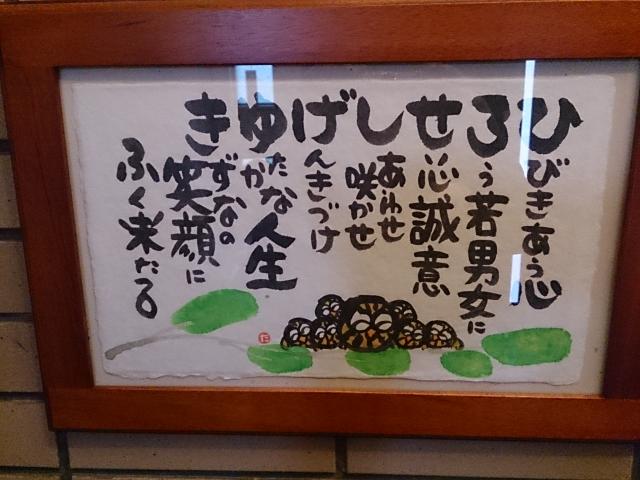 ひびきあう心
ろう若男女に
せい心誠意
しあわせ
咲かせ
げんきづけ
ゆたかな人生
きずなの
笑顔に
ふく来たる